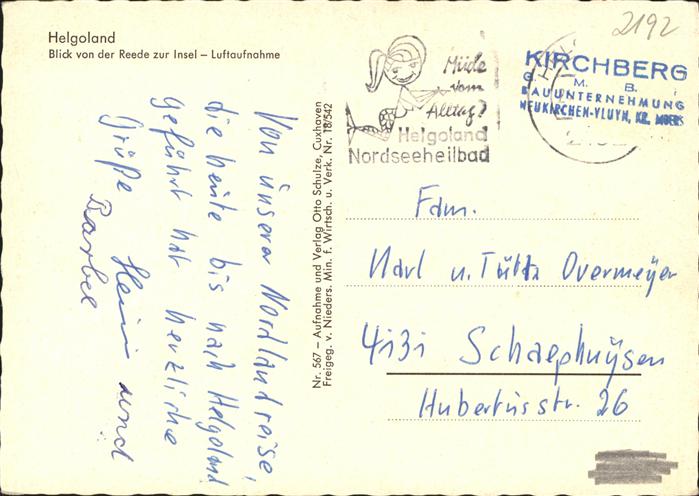 Helgoland
Blick von der Reede zur Insel – Luftaufnahme
2192
Müde
vom
Alltag?
Helgoland
Nordseeheilbad
KIRCHBERG
G. M. B.
BAUUNTERNEHMUNG
NEUKIRCHEN-VLUYN, KR. MOERS
Von unserer Nordlandreise,
die heute bis nach Helgoland
geführt hat herzliche
Grüße Heini und
Barbel
Nr. 567 – Aufnahme und Verlag Otto Schulze, Cuxhaven
Freigeg. v. Nieders. Min. f. Wirtsch. u. Verk. Nr. 18/542
Fam.
Karl u. Tütta Overmeyer
4131 Schaephuysen
Hubertusstr. 26